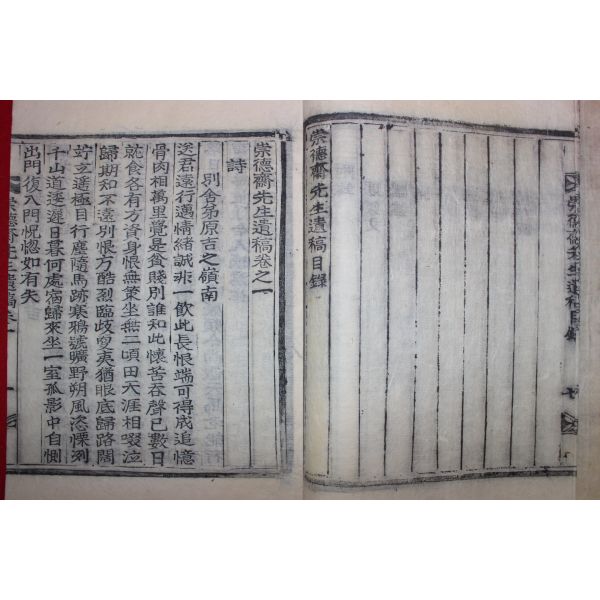 崇德齋先生遺稿目錄
崇德齋先生遺稿目錄
崇德齋先生遺稿卷之一
詩
別舍弟原吉之嶺南
送君遠行邁情緒誠非一飮此長恨端可得成追憶
骨肉相萬里覺是貧賤別誰知此懷苦吞聲已數日
就食各有方資身恨無策坐無二頃田天涯相啜泣
歸期知不遠別恨方酷烈臨歧夷猶眼底歸路闊
竚立遙極目行塵隨馬跡寒鴉號曠野朔風恣慄列
千山道逶遲日暮何處宿歸來坐一室孤影中自惻
出門復入門怳惚如有失
崇德齋先生遺稿卷一